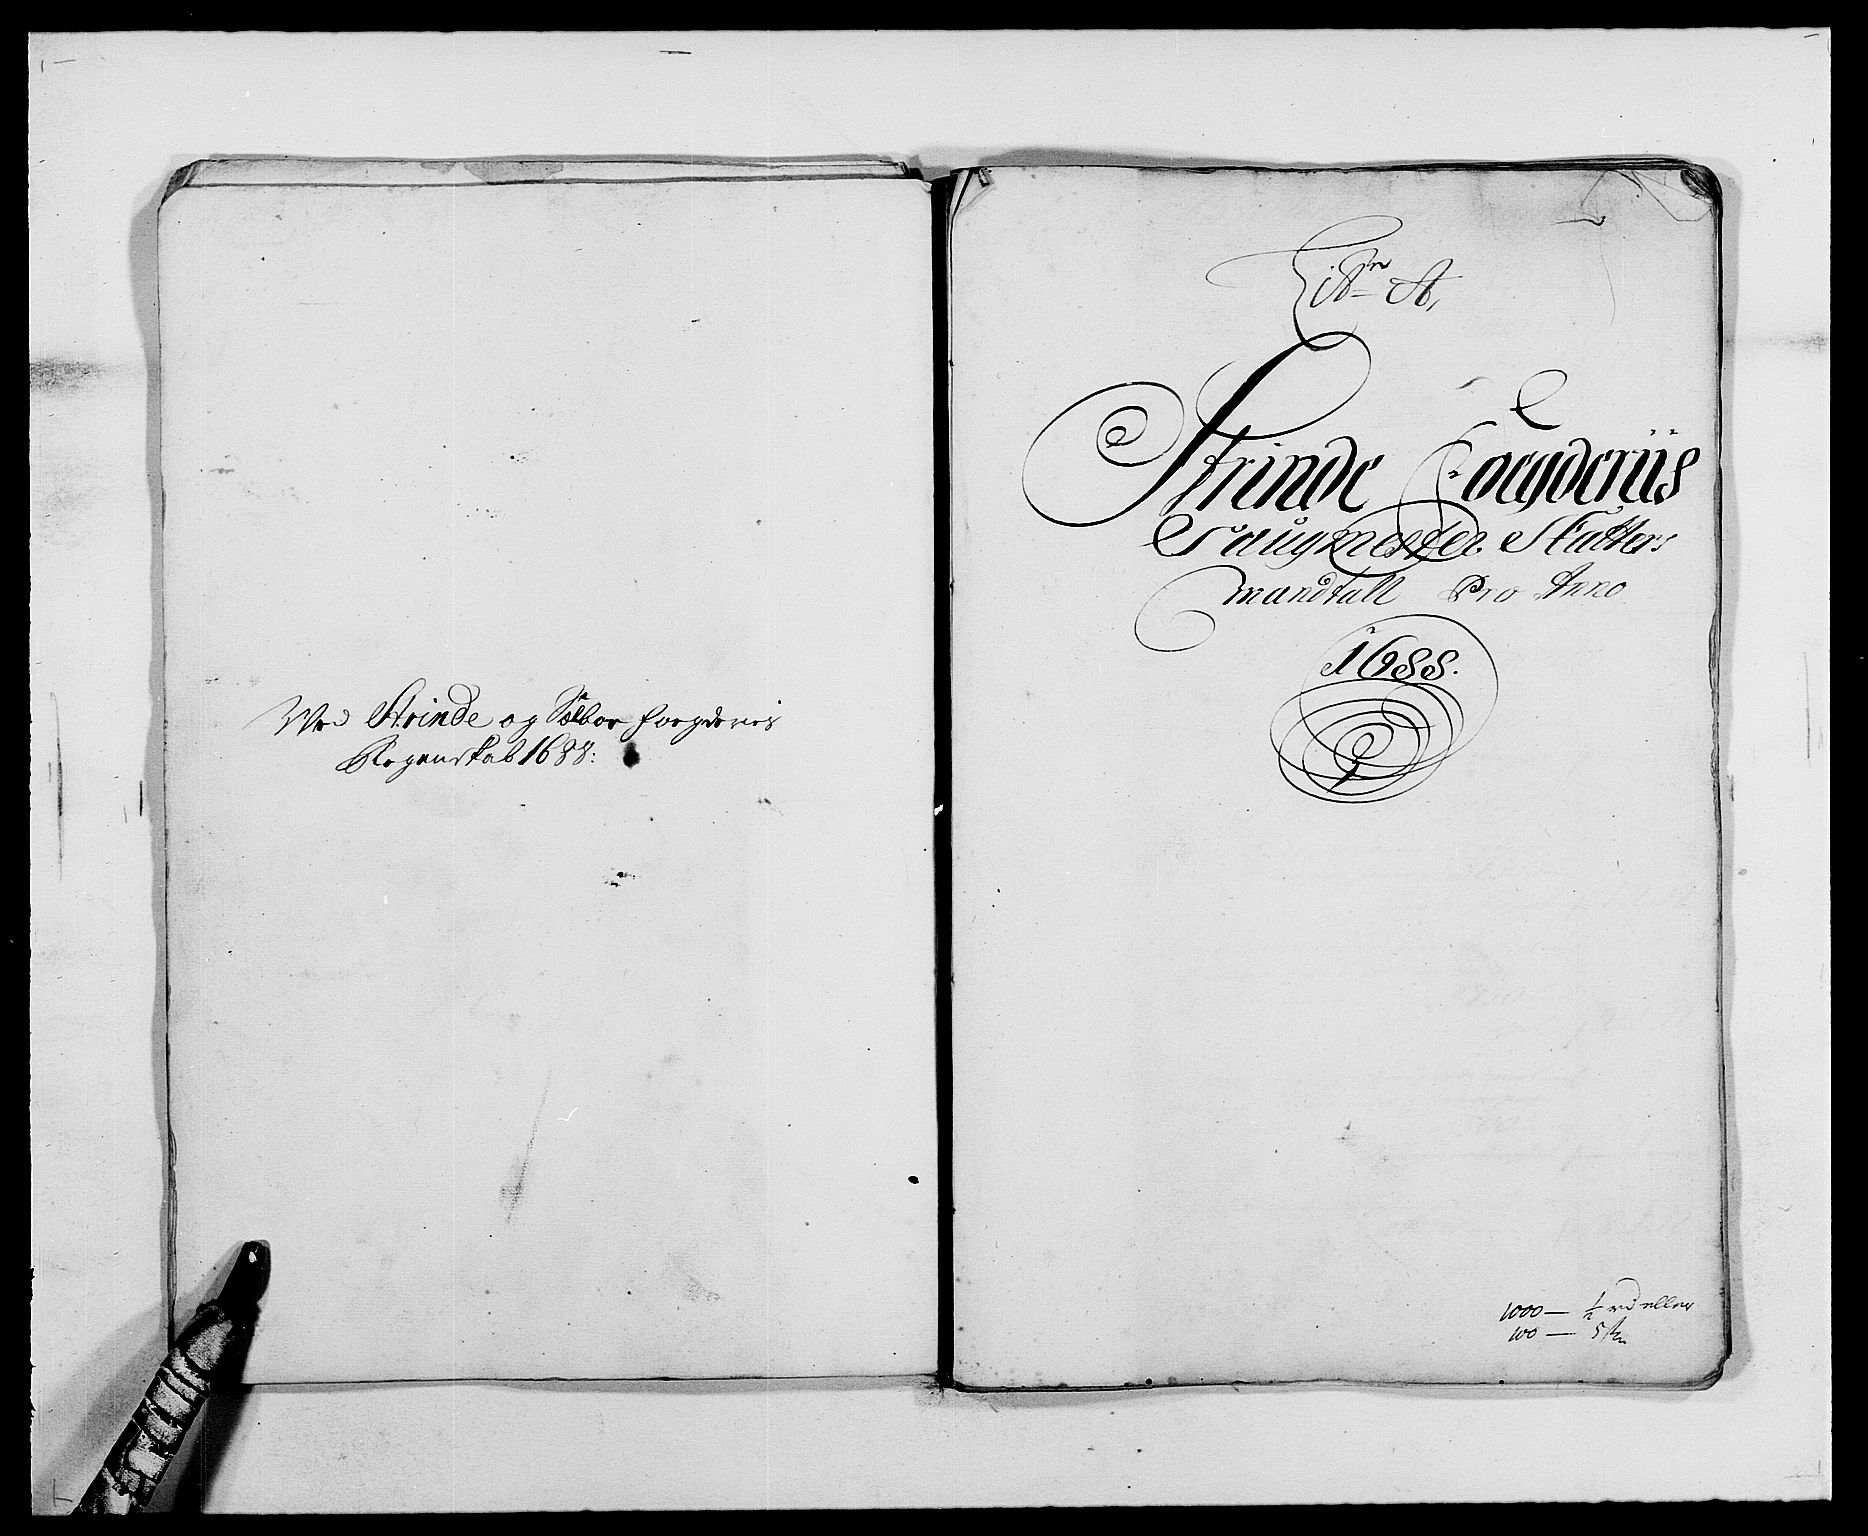 Ved Strinde og Selboe foegderies
Regenskab 1688:
Litr A,
Strinde Foegderiis
Saugmester Skatters
mandtall Pro Anno
1688.
1000 — ½ rd eller
100 — 5